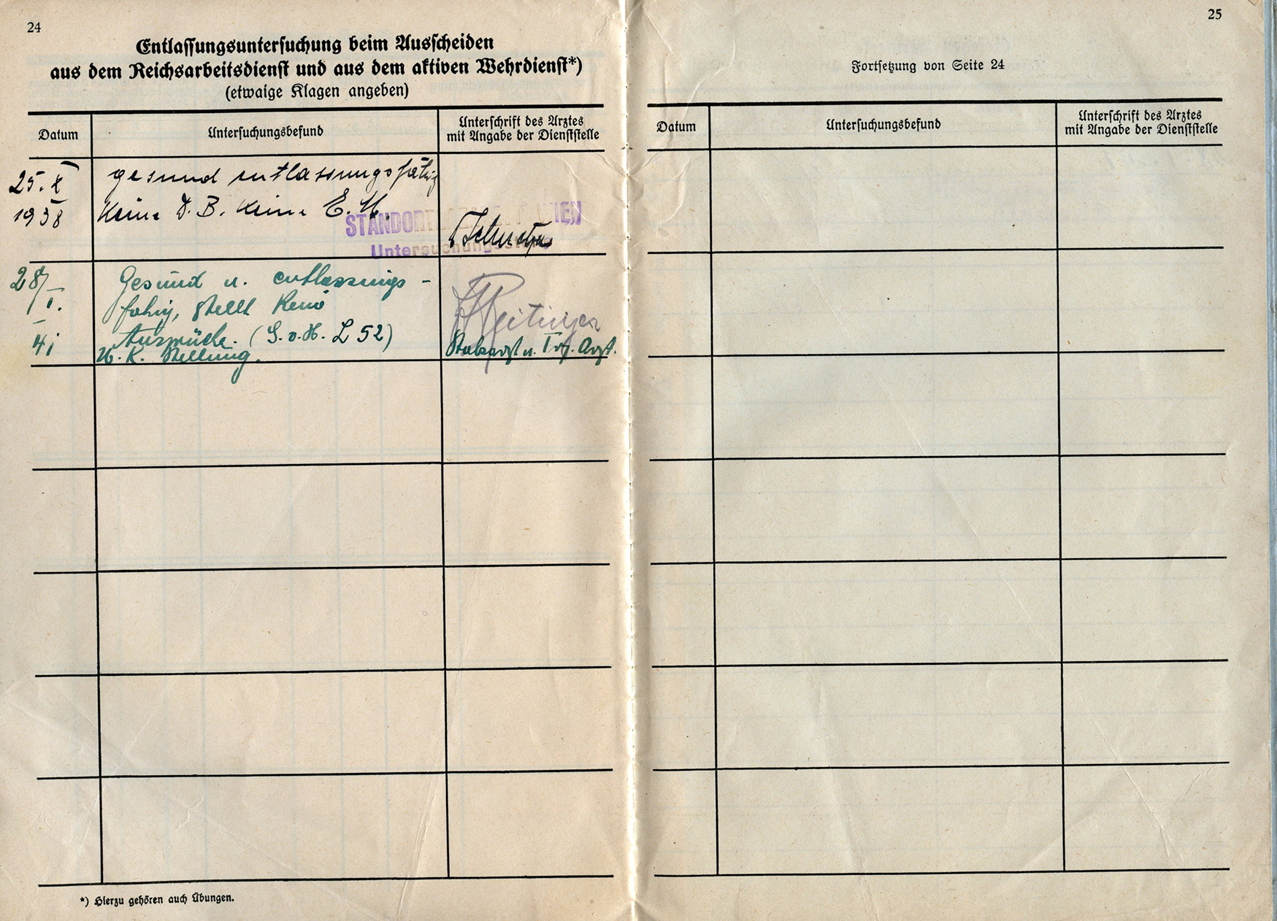 24
Entlassungsuntersuchung beim Ausscheiden
aus dem Reichsarbeitsdienst und aus dem aktiven Wehrdienst*)
(etwaige Klagen angeben)
Datum
Untersuchungsbefund
Unterschrift des Arztes
mit Angabe der Dienststelle
25. X
1938
gesund entlassungsfähig
Keine D. B. Keine E. U.
STANDORT
Untersuchungs
28/
I.
41
Gesund u. entlassungs-
fähig, stellt keine
Ansprüche. (S. v. H. L 52)
U. K. Stellung.
Stabsarzt u. Arzt.
*) Hierzu gehören auch Übungen.
25
Fortsetzung von Seite 24
Datum
Untersuchungsbefund
Unterschrift des Arztes
mit Angabe der Dienststelle